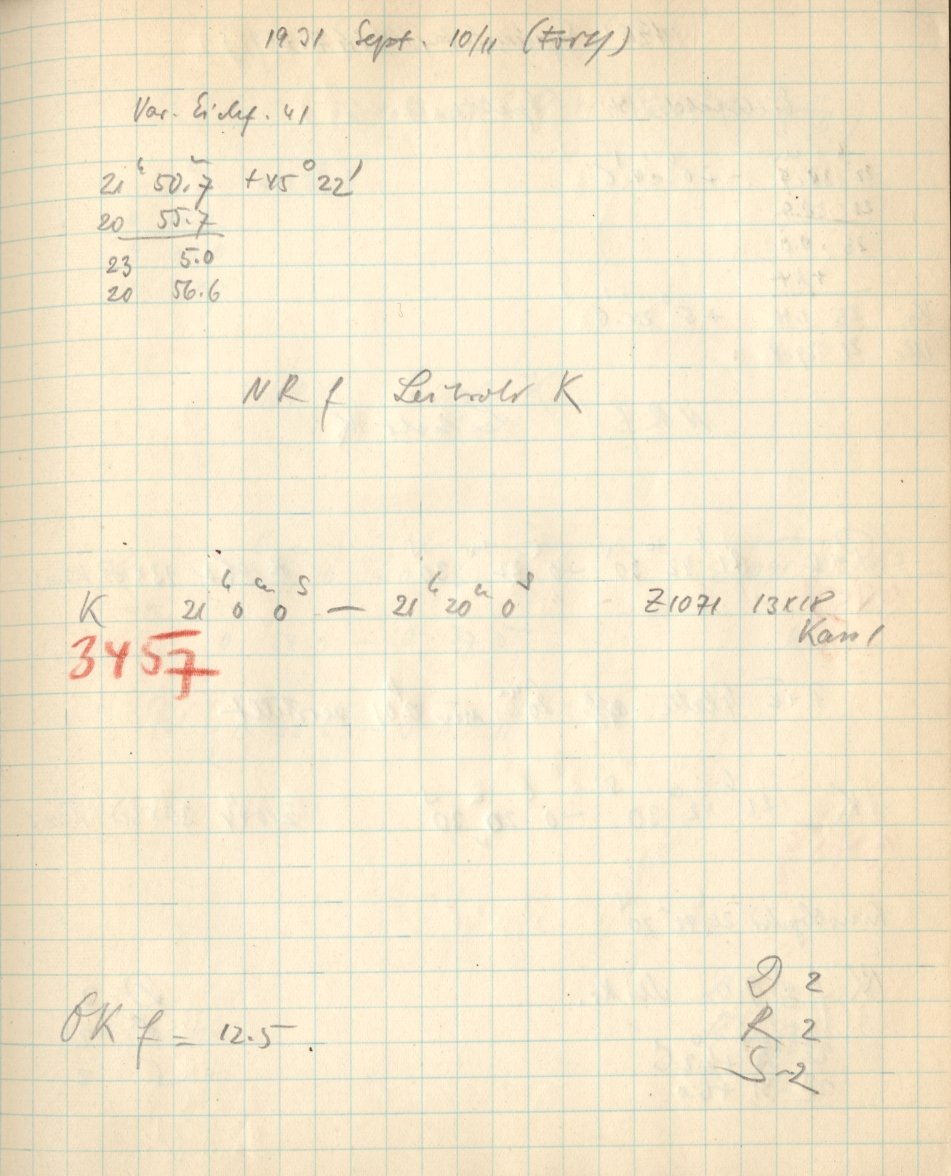 1931 Sept. 10/11 (Forts)
Var. Eichf. 41
21ʰ 50.ᵐ7 +45° 22'
20 55.7
23 5.0
20 56.6
NRf Leitrohr K
K 21ʰ 0ᵐ 0ˢ — 21ʰ 20ᵐ 0ˢ Z1071 13x18
Kass 1
3457
D 2
ÖK f = 12.5
R 2
S 2